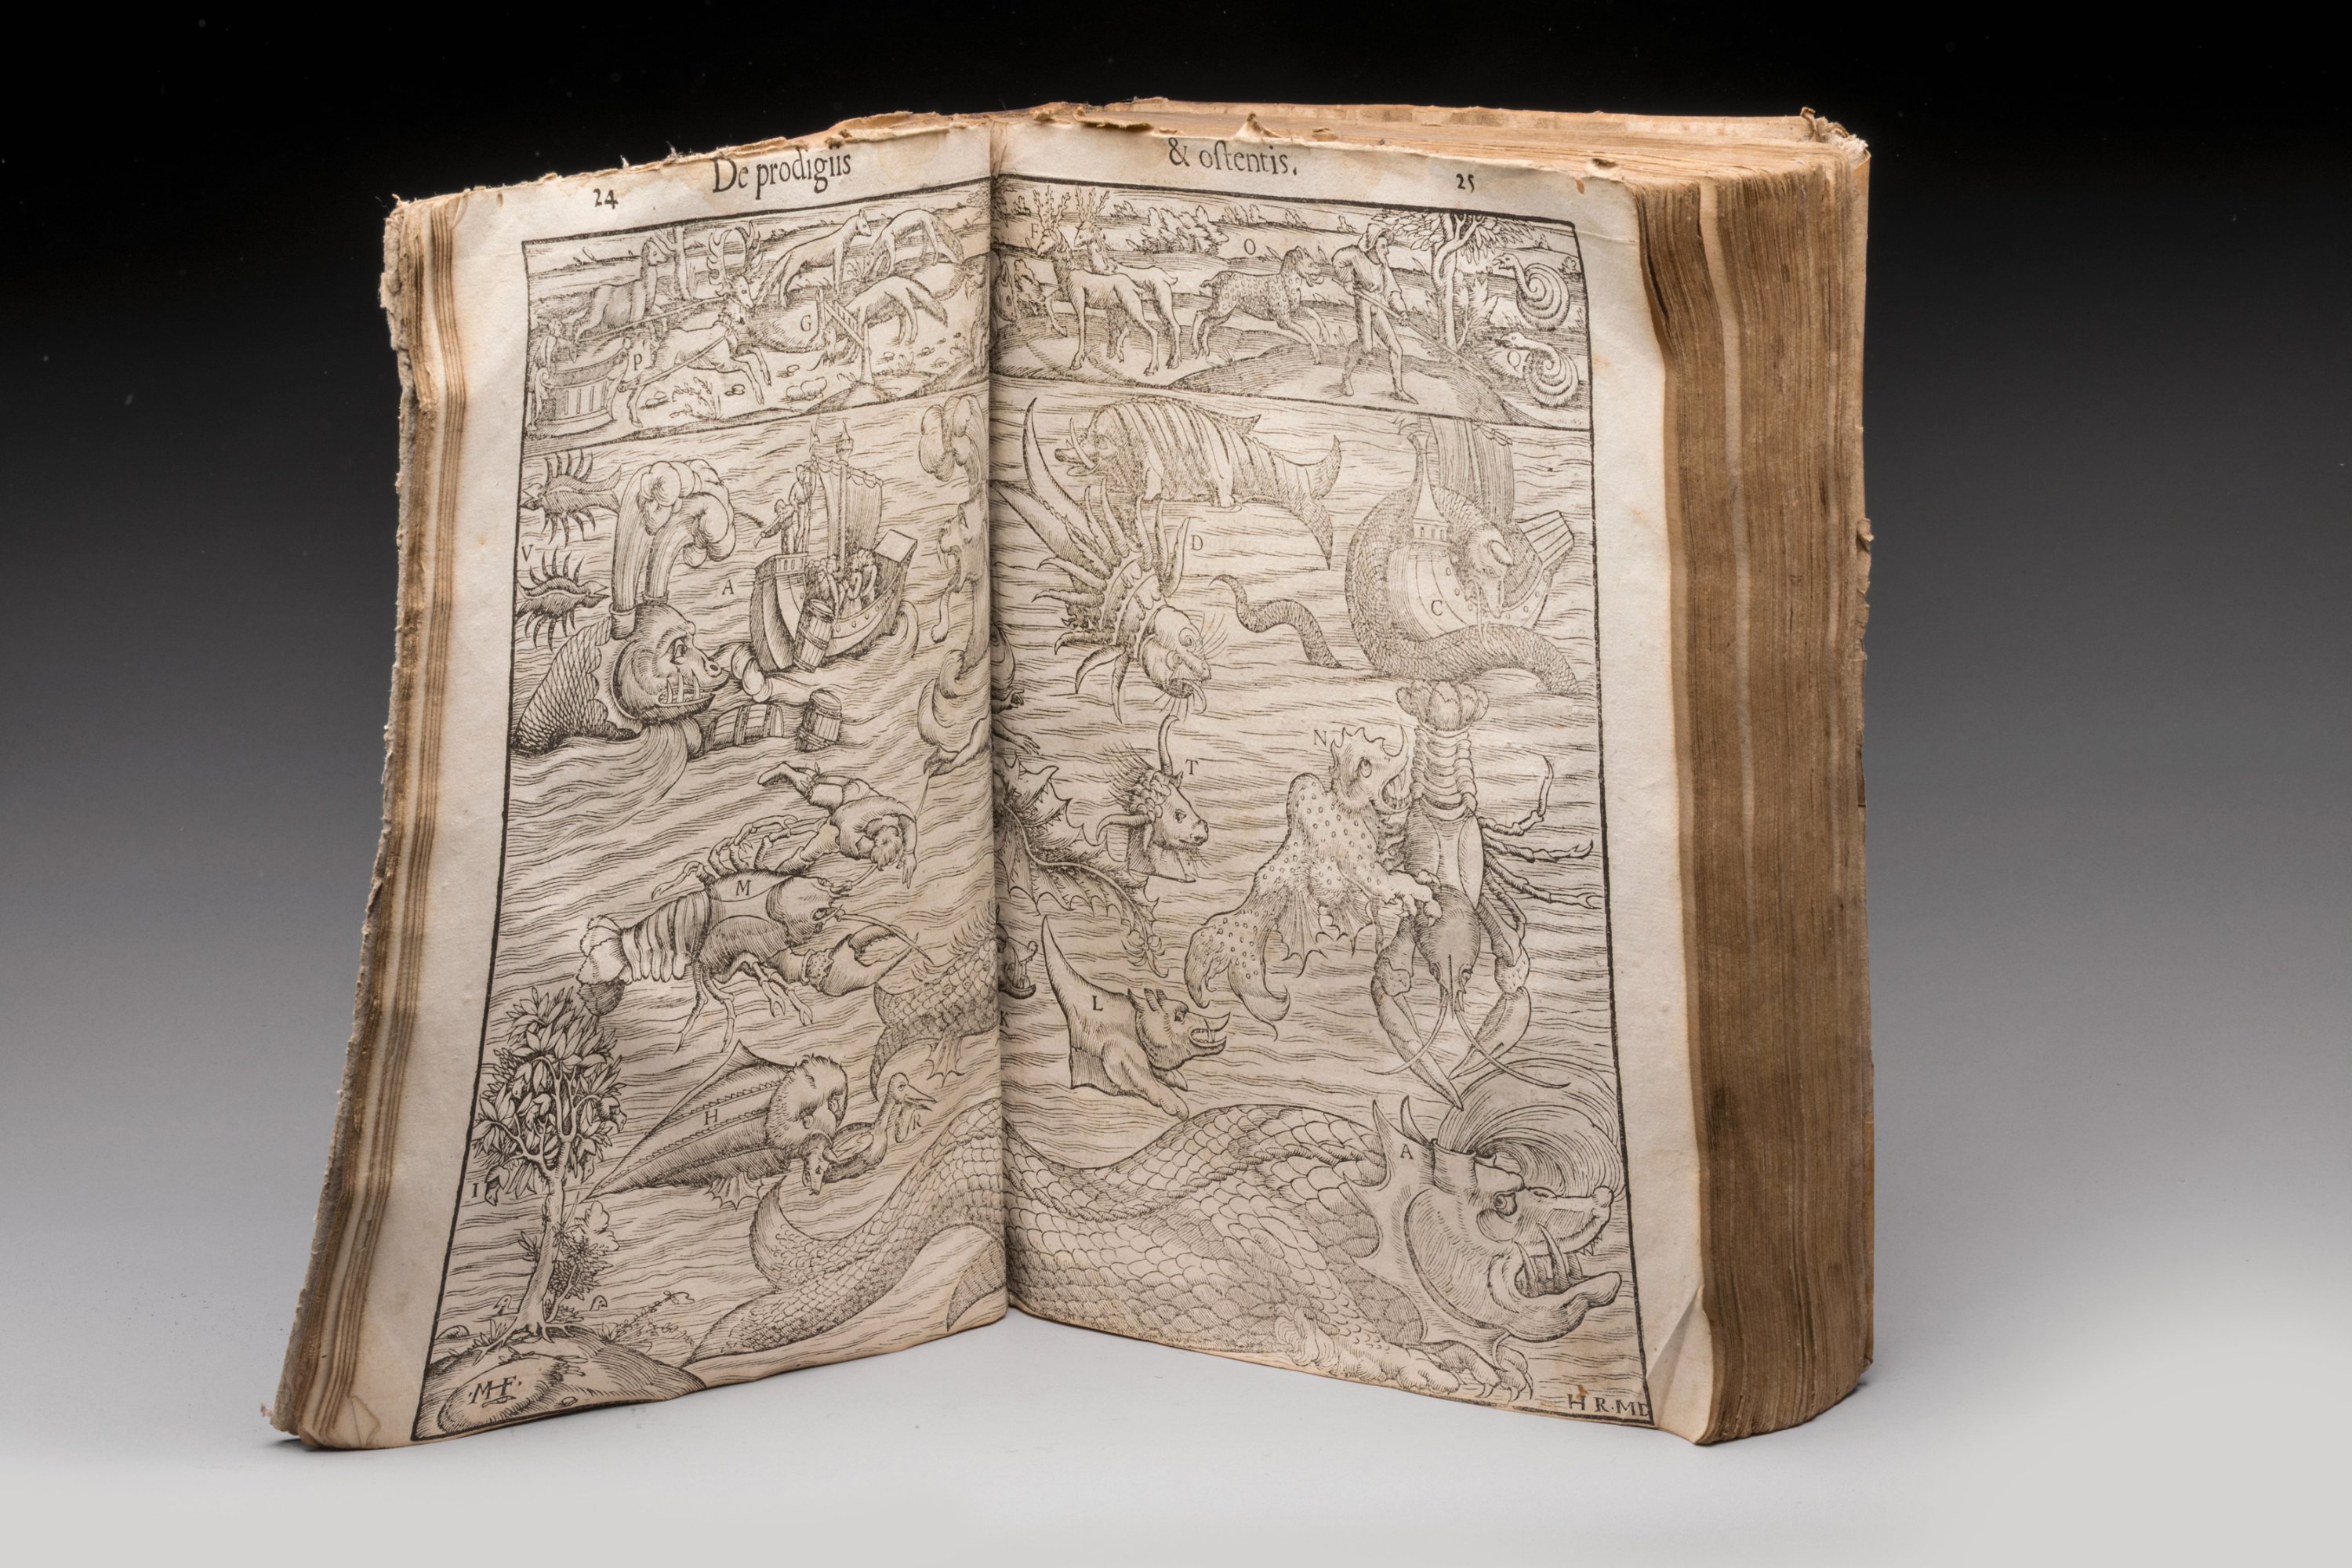 24 De prodigiis
& oſtentis. 25
F
O
G
P
Q
V
A
D
C
N
T
M
L
H
R
A
I
·MHF·
H R·MD